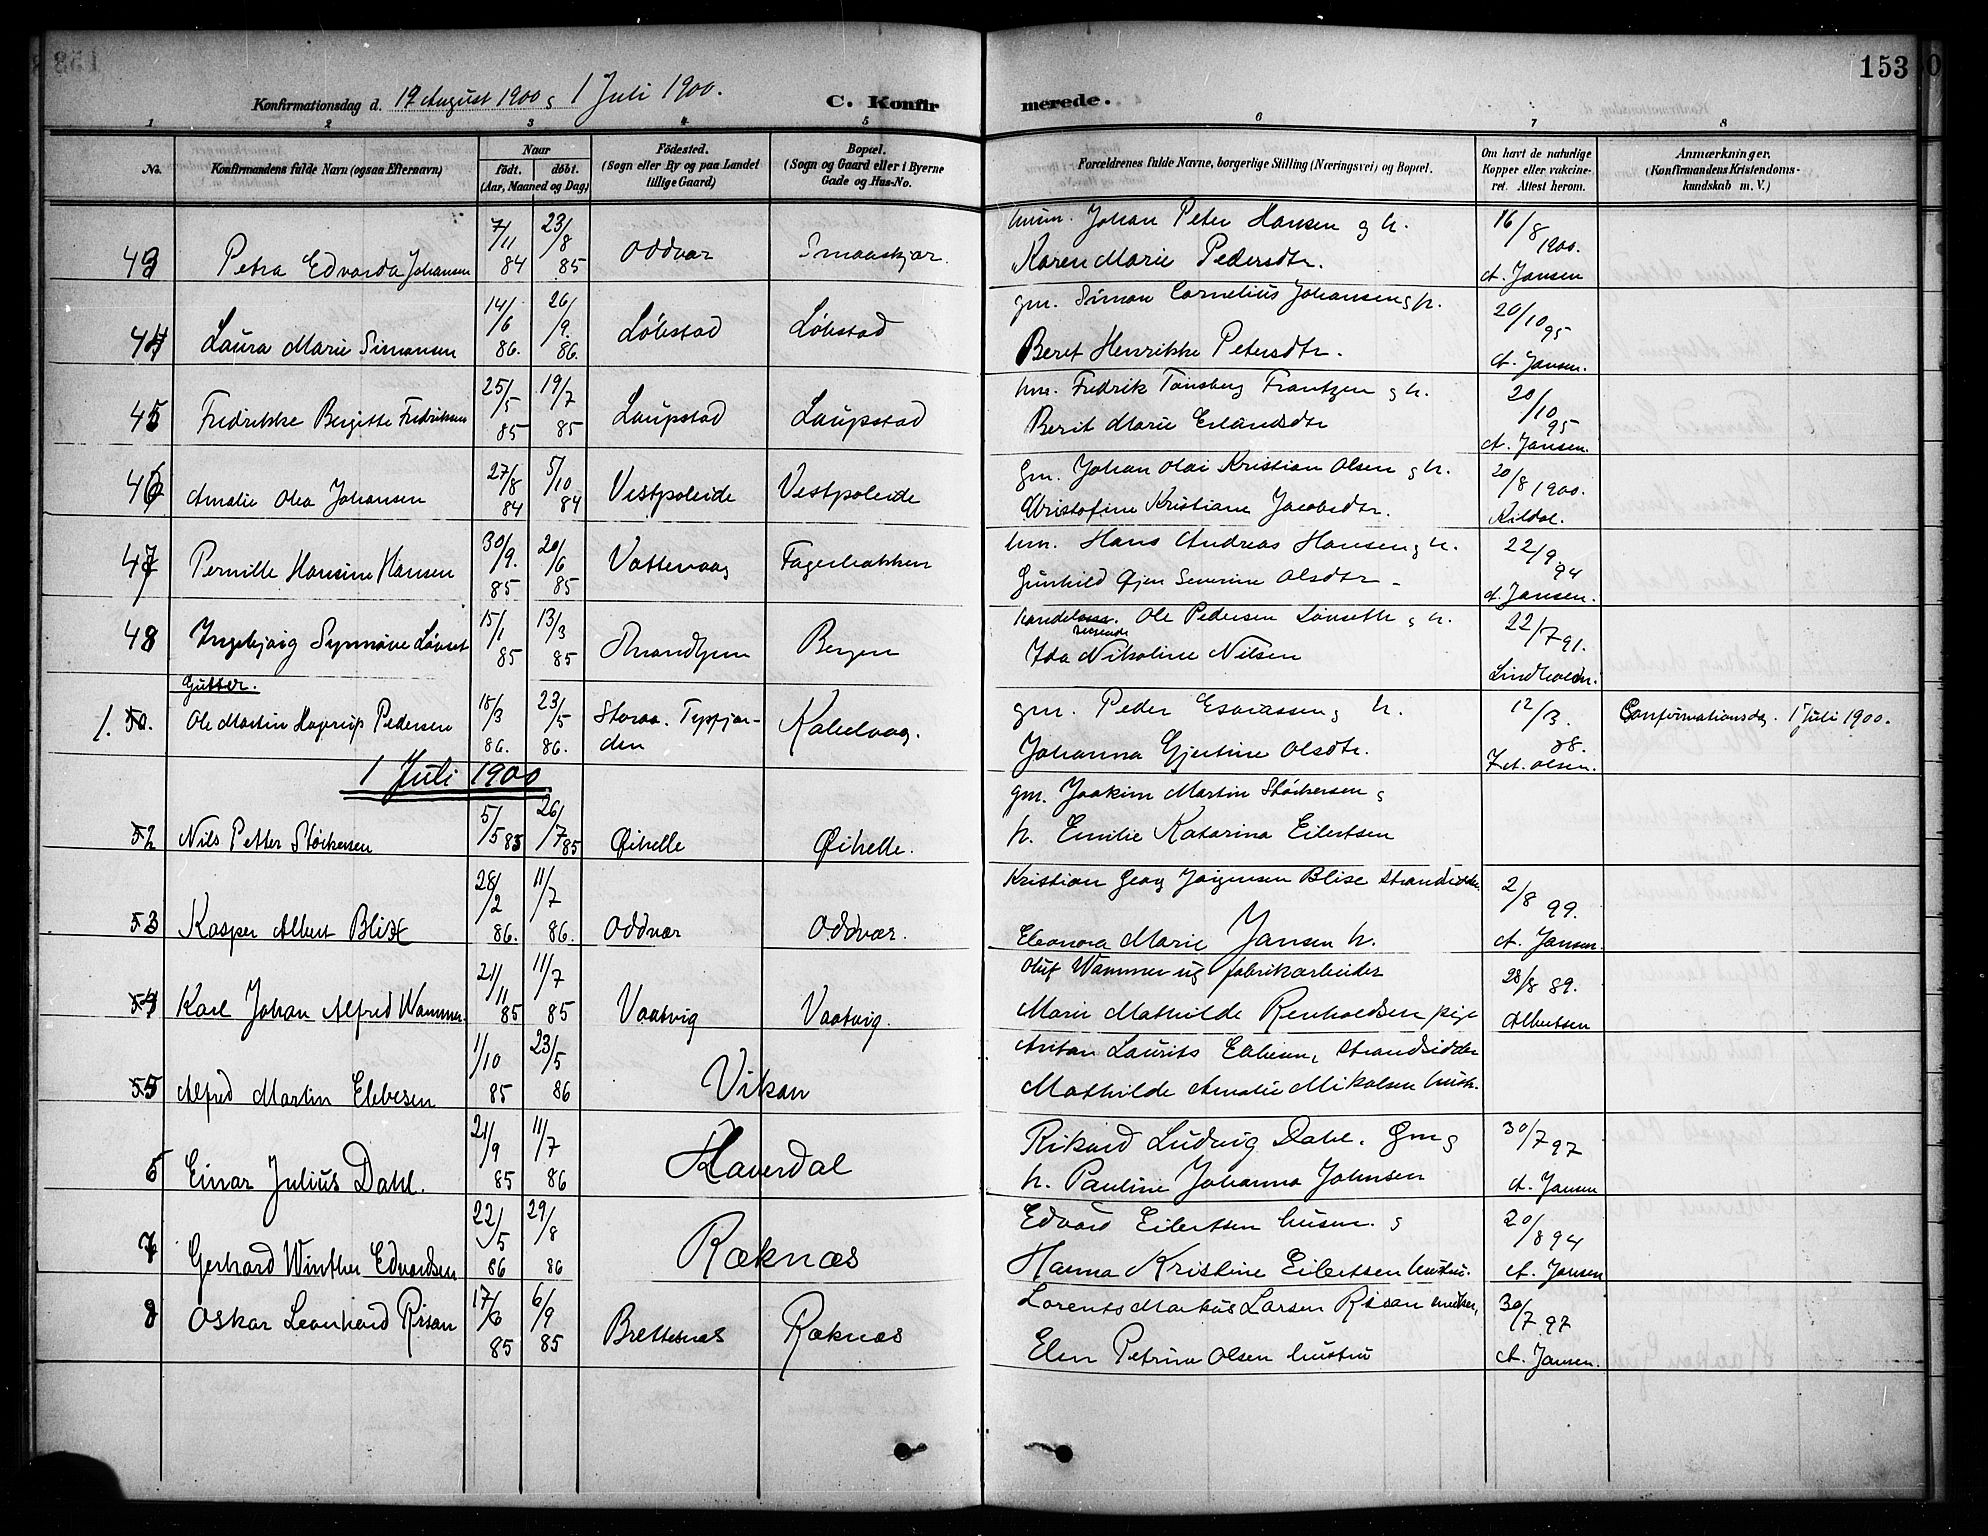 153
Konfirmationsdag d. 19 August 1900 & 1 Juli 1900.
C. Konfirmerede.
1 2 3 4 5 6 7 8
No. Konfirmandens fulde Navn (ogsaa Efternavn) Naar født. døbt. (Aar, Maaned og Dag) Fødested. (Sogn eller By og paa Landet tillige Gaard) Bopæl. (Sogn og Gaard eller i Byerne Gade og Hus-No. Forældrenes fulde Navne, borgerlige Stilling (Næringsvei) og Bopæl. Om havt de naturlige Kopper eller vakcineret. Attest herom. Anmærkninger. (Konfirmandens Kristendomskundskab m. V.)
43 Petra Edvarda Johansen 7/11 84 23/8 85 Oddvær Smaaskjær. husm. Johan Peter Hansen & h. 16/8 1900.
Karen Marie Pedersdtr. A. Jansen
44 Laura Marie Simonsen 14/6 86. 26/9. 86. Løbstad Løbstad gm. Simon Cornelius Johansen & h. 20/10 95
Beret Henrikke Petersdtr. A. Jansen.
45 Fredrikke Bergitte Fredriksen 25/5 85 19/7 85 Laupstad Laupstad hm. Fredrik Tønsberg Frantzen & h. 20/10 95
Berit Marie Erlandsdtr A. Jansen.
46 Amalie Olea Johansen 27/8 84 5/10 84 Vestpoleide Vestpoleide Gm. Johan Olai Kristian Olsen & h. 20/8 1900.
Christofine Kristiane Jacobsdtr. Kildal.
47 Pernille Hansine Hansen 30/9. 85 20/6 85 Vattevaag Fagerbakken hm. Hans Andreas Hansen & h. 22/9 94
Gunhild Severine Olsdtr A. Jansen.
48 Ingebjørg Synnøve Løvset 15/1 85 13/3 85 Trondhjem Bergen handelsreisende Ole Pedersen Lønseth & h. 22/7 91.
Ida Nikoline Nilsen Lindholm.
Gutter.
1. 50. Ole Martin Hagerup Pedersen 18/3 86. 23/5 86. Storaa. Tysfjorden Kabelvaag. gm. Peder Esaiassen & h. 12/3. 88. Confirmationsdag. 1 Juli 1900.
Johanna Gjertine Olsdtr. Z. A. Olsen.
1 Juli 1900
52 Nils Petter Størkersen 5/5 85 26/7 85 Øihelle Øihelle. gm. Joakim Martin Størkersen &
h. Emilie Katarina Eilertsen
53 Kasper Albert Blix 28/2 86. 11/7 86. Oddvær Oddvær. Kristian Georg Jørgensen Blix strandsidder 2/8 99.
Eleonora Marie Jansen h. A. Jansen.
54 Karl Johan Alfred Wammer. 21/11 85 11/7 85 Vaatvig Vaatvig. Oluf Wammer ug. fabrikarbeider 28/8 89.
Marie Mathilde Renholdsen pige Albertsen
55 Alfred Martin Ebbesen 1/10 85 23/5 86 Vikan Anton Laurits Ebbesen, strandsidder
Mathilde Amalie Mikalsen hust.
6 Einar Julius Dahl. 21/9 85 11/7 86 Haverdal Rikard Ludvig Dahl. Gm & 30/7 97
h. Pauline Johanna Johnsen A. Jansen
7 Gerhard Winther Edvardsen 22/5 86 29/8 86 Ræknæs Edvard Eilertsen husm. & 20/8 94
Hanna Kristine Eilertsen hustru. A. Jansen
8 Oskar Leonhard Risan 17/6 85 6/9 85 Brettesnæs Ræknæs Lorents Markus Larsen Risan 30/7 97
Elen Petrina Olsen hustru A. Jansen.